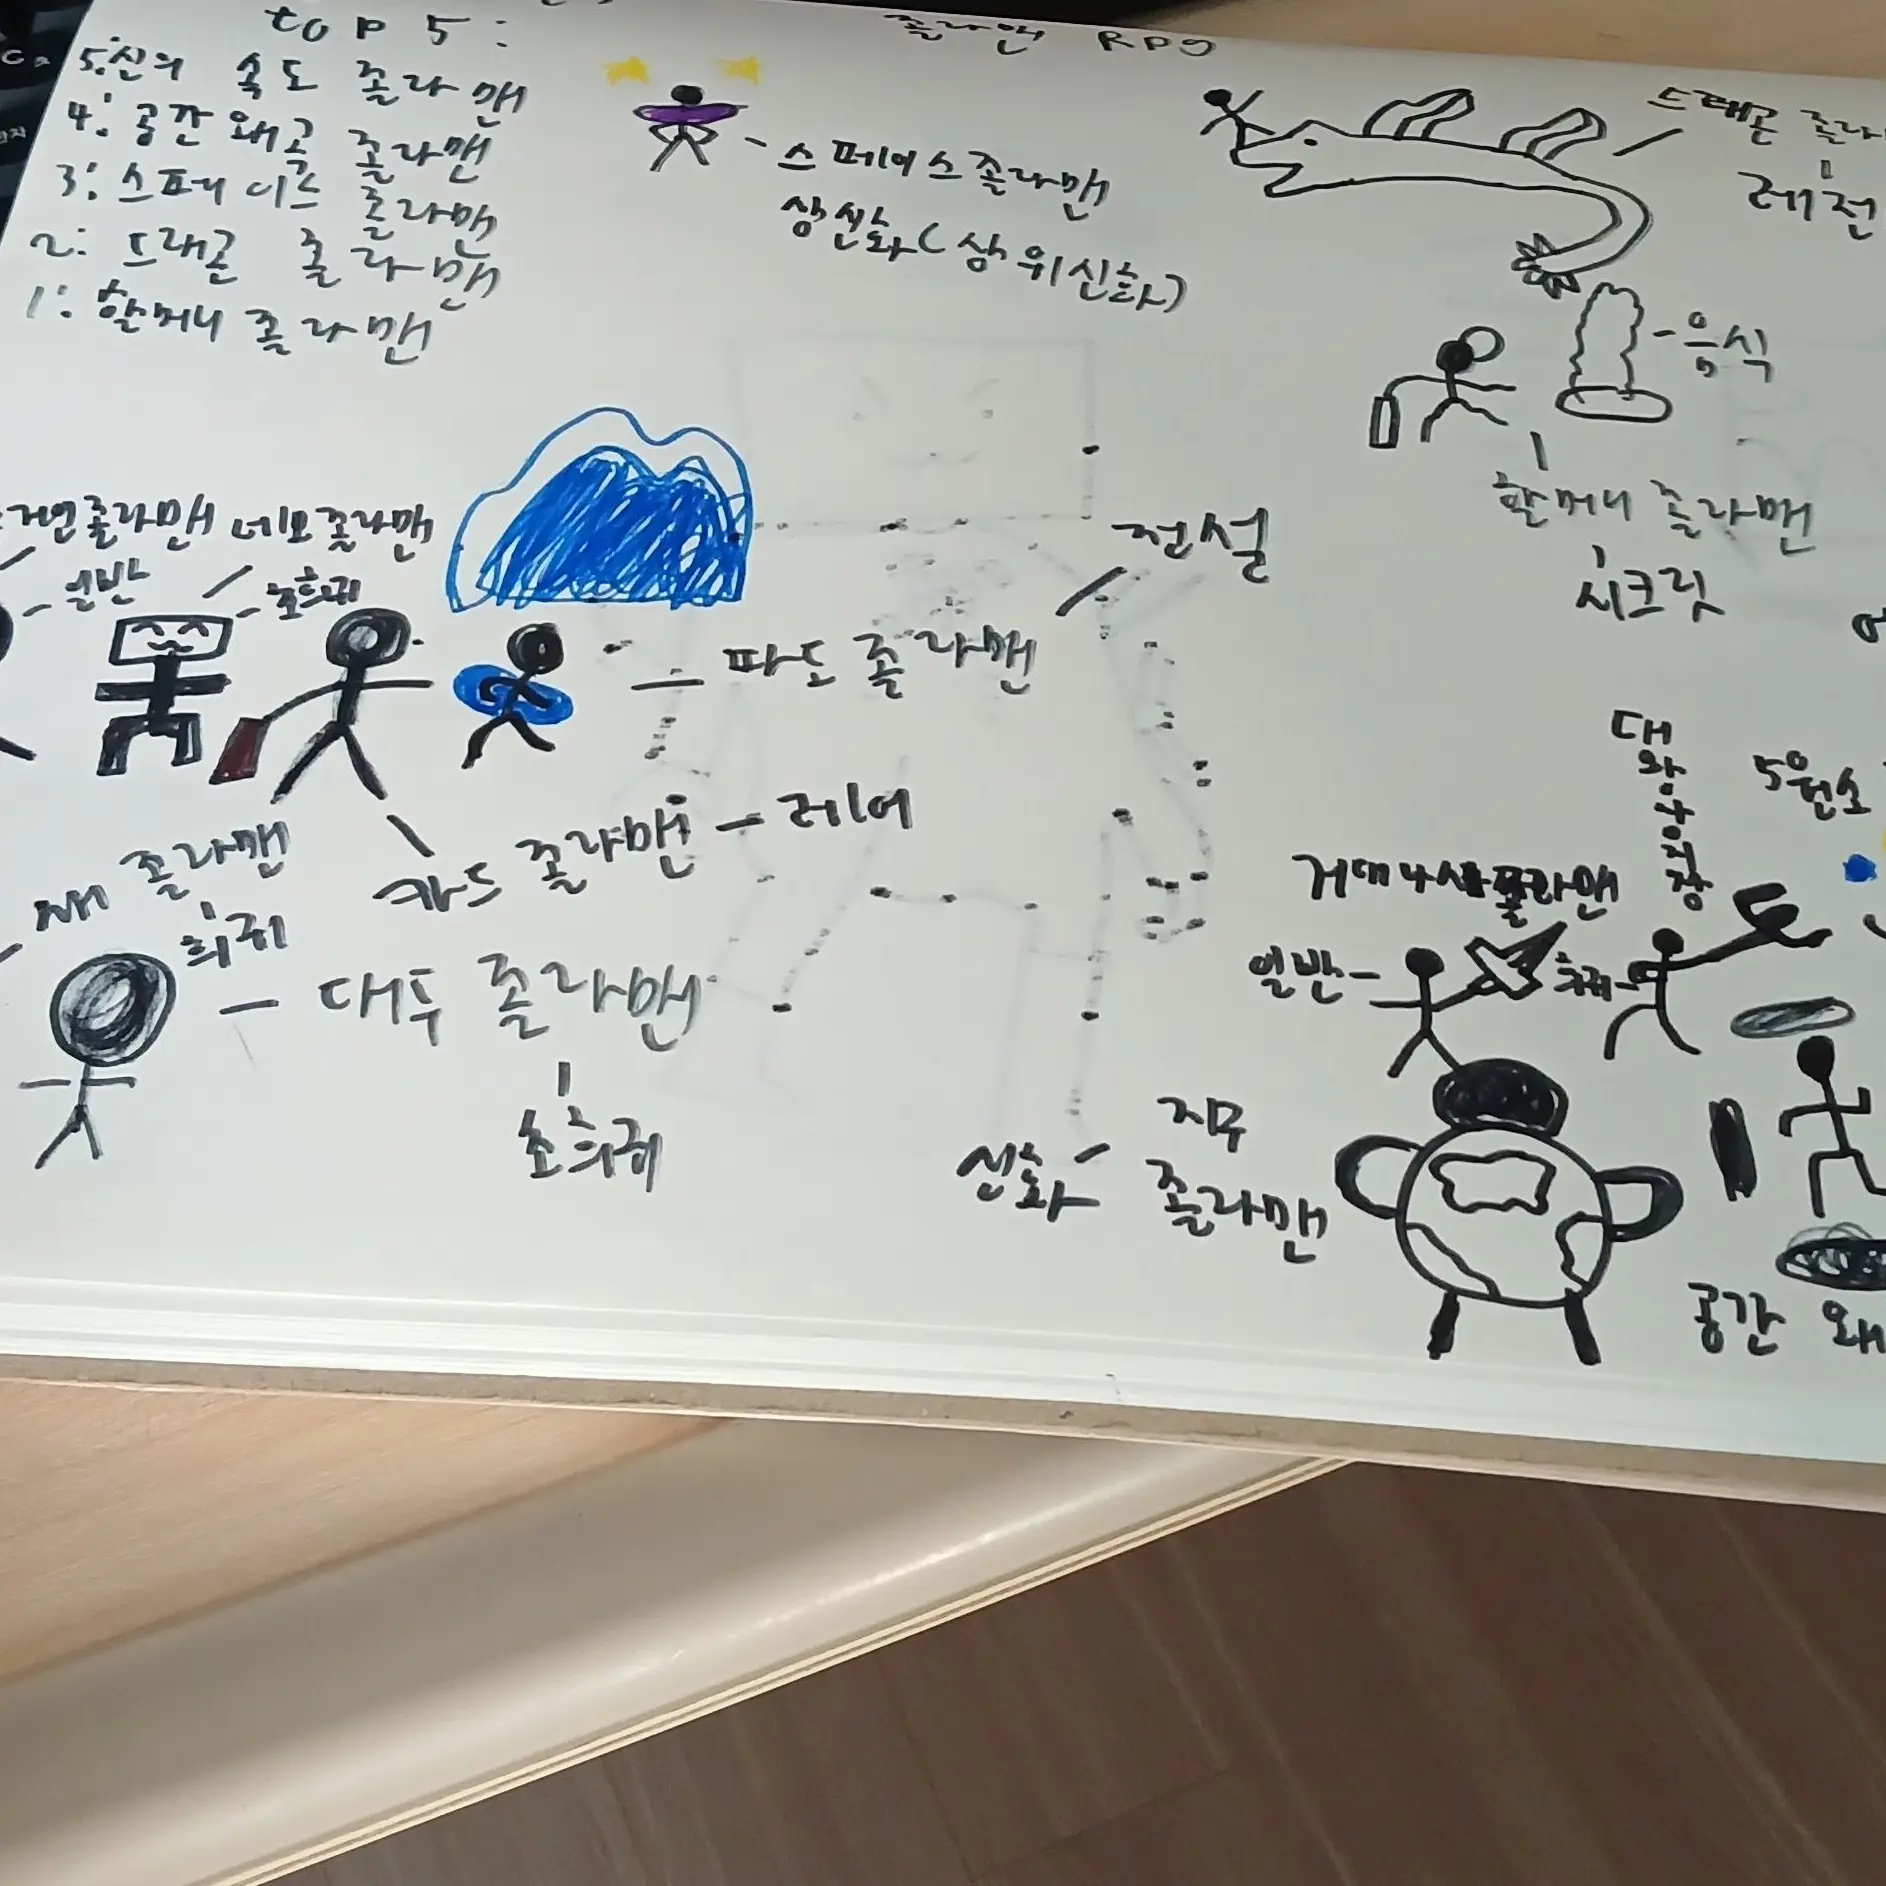 top 5:
5: 신의 속도 졸라맨
4: 공간 왜곡 졸라맨
3: 스페이스 졸라맨
2: 드래곤 졸라맨
1: 할머니 졸라맨
졸라맨 RPG
스페이스 졸라맨
상신화 (상위신화)
드래곤 졸라
레전
음식
할머니 졸라맨
시크릿
네모 졸라맨
일반
초희귀
전설
파도 졸라맨
졸라맨
희귀
카드 졸라맨 - 레어
대두 졸라맨
초희귀
대왕우지장
5원소
거대나사졸라맨
일반
희귀
지구
졸라맨
신화
공간 왜